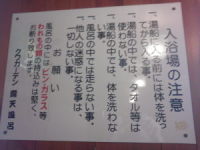 入浴場の注意
一、湯船に入る前には体を洗っ
てから入る事。
一、湯船の中では、タオル等は
使わない事。
一、湯船の中では、体を洗わな
い事。
一、風呂の中では走らない事。
一、他人の迷惑になる事は
しない事。
お願い
風呂の中には ビン・ガラス等
われもの類の持込みは堅く、
お断り致します。
クアガーデン 露天風呂